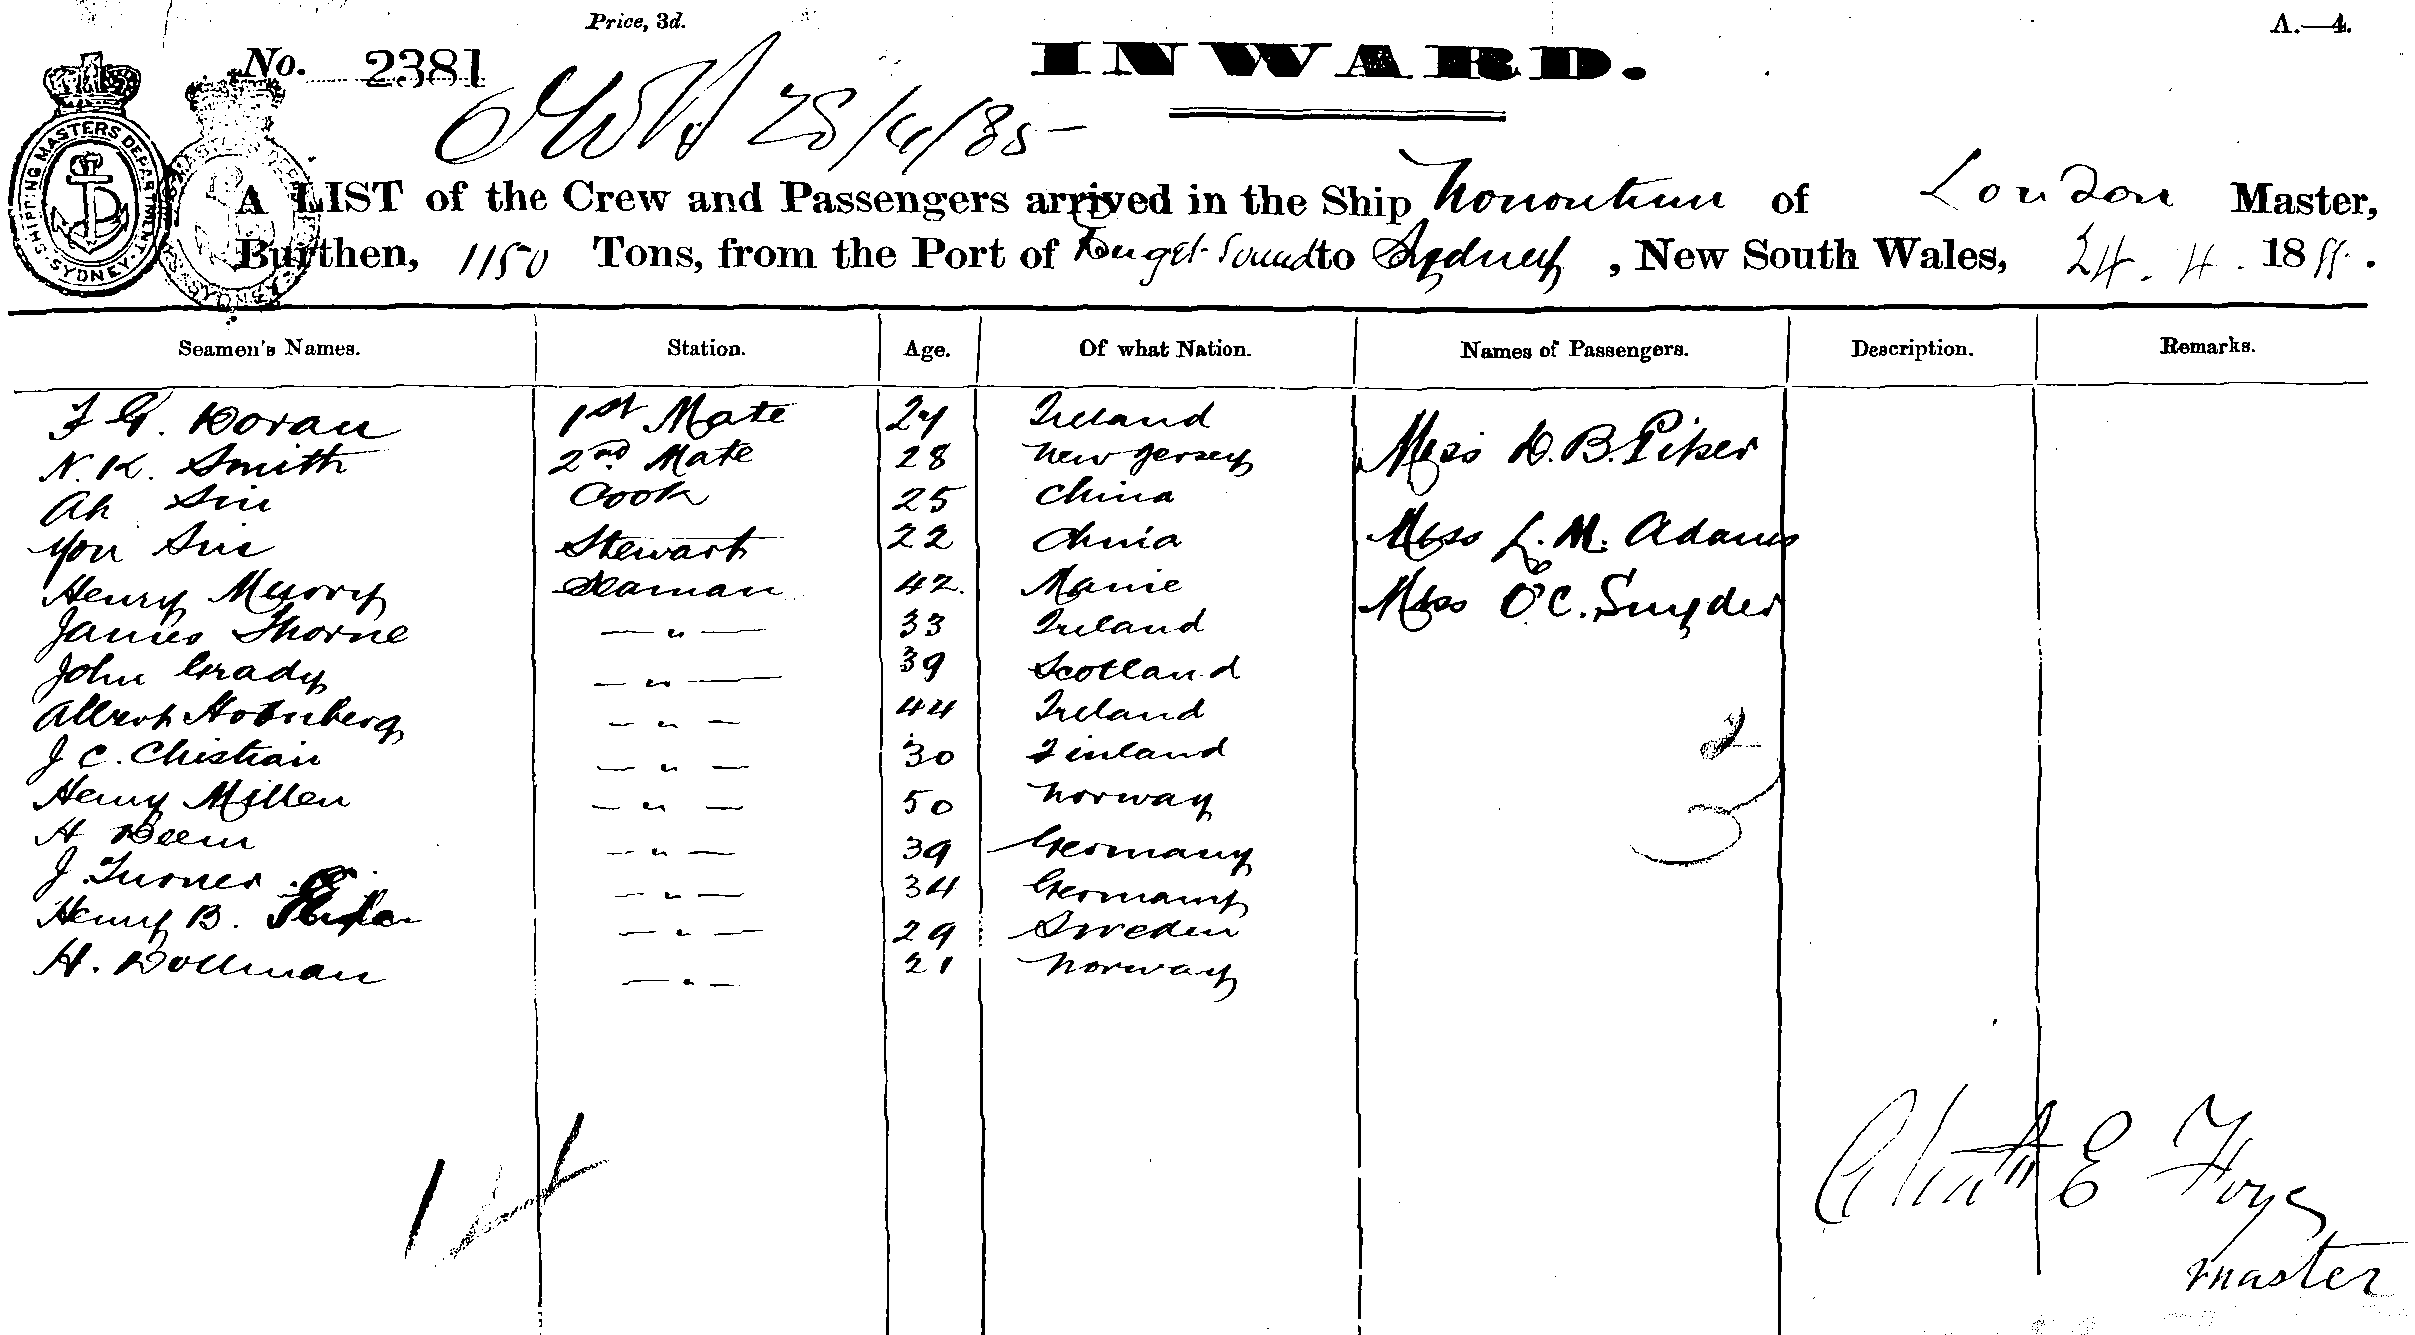 Price, 3d.
A.—4.
No. 2381
INWARD.
28/4/85
SHIPPING MASTERS DEPARTMENT SYDNEY
A LIST of the Crew and Passengers arrived in the Ship of London Master,
Burthen, 1150 Tons, from the Port of Puget Sound to Sydney, New South Wales, 24.4.18
Seamen's Names. Station. Age. Of what Nation. Names of Passengers. Description. Remarks.
F G. Doran 1st Mate Ireland
N. K. Smith 2nd Mate 28 New Jersey Miss D. B. Piper
Ah Sin Cook 25 China
You Sin Stewart 22 China Miss L. M. Adams
Henry Murry Seaman 42 Maine Miss C. Snyder
James Thorne — " — 33 Ireland
John Grady — " — 39 Scotland
Albert — " — 44 Ireland
J C. Chistian — " — 30 Finland
Henry Millen — " — 50 Norway
H Deem — " — 39 Germany
J. Turner — " — 34 Germany
Henry B. — " — 29 Sweden
H. Dollman — " — 21 Norway
3
14
E
master